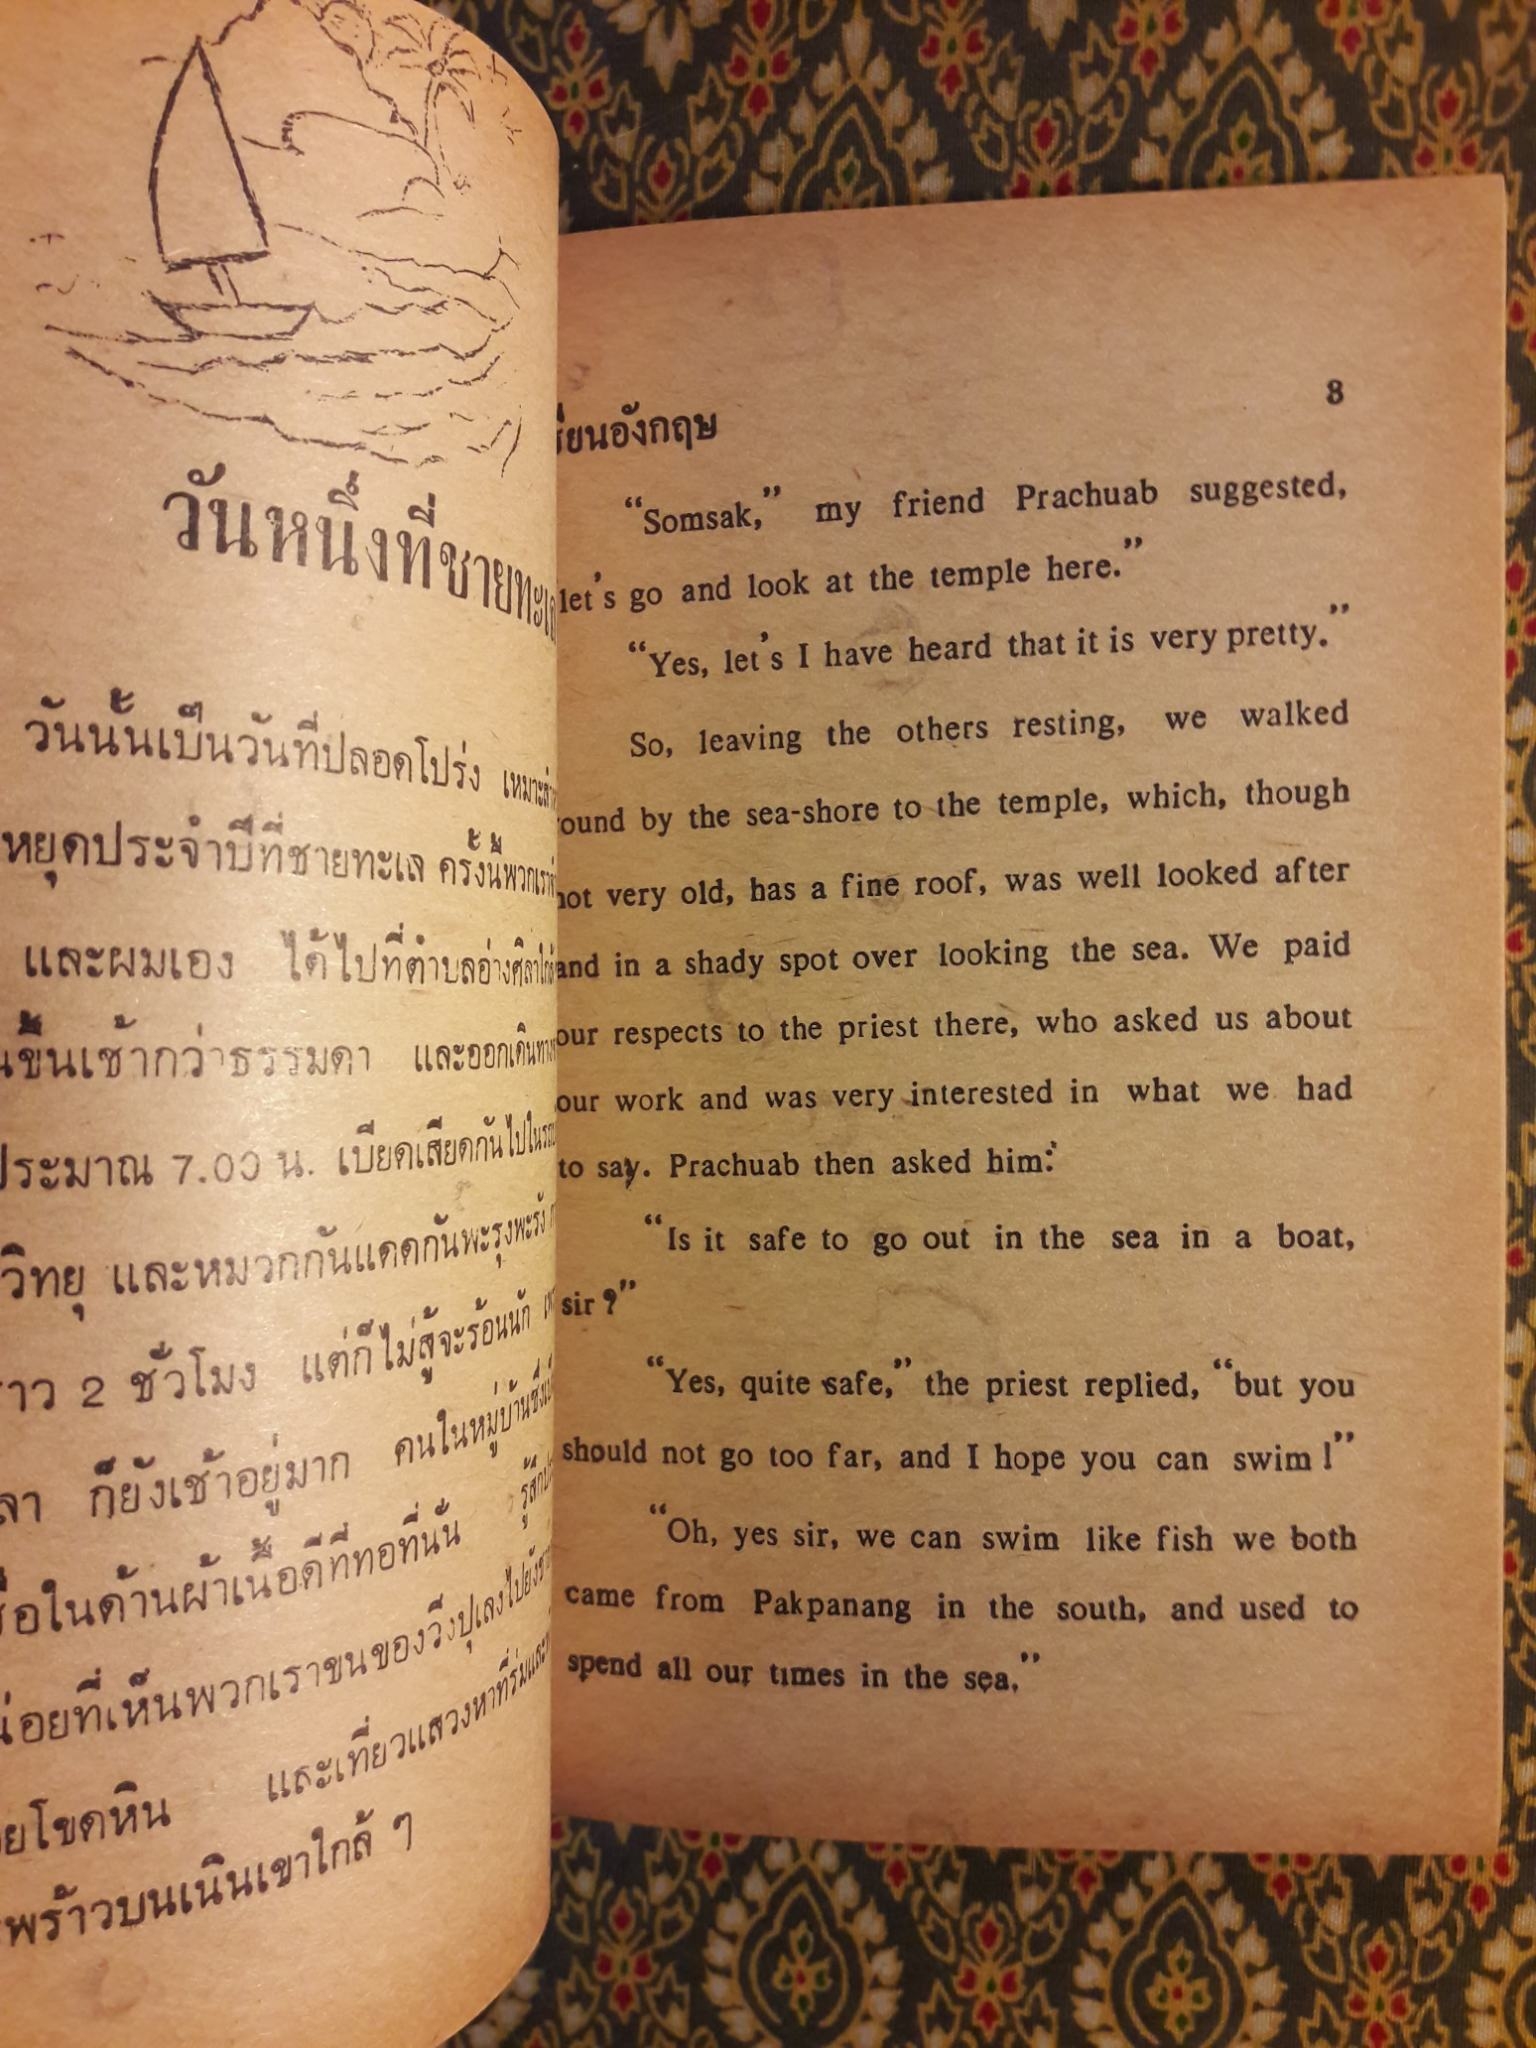 วันหนึ่งที่ชายทะเล
วันนั้นเป็นวันที่ปลอดโปร่ง
หยุดประจำปีที่ชายทะเล ครั้งนี้พวกเรา
และผมเอง ได้ไปที่ตำบลอ่างศิลาใกล้
ขึ้นเช้ากว่าธรรมดา และออกเดินทาง
ประมาณ 7.00 น. เบียดเสียดกันไปในรถ
วิทยุ และหมวกกันแดดกันพะรุงพะรัง
2 ชั่วโมง แต่ก็ไม่สู้จะร้อนนัก
ก็ยังเช้าอยู่มาก คนในหมู่บ้านซึ่ง
ในด้านผ้าเนื้อดีที่ทอที่นั่น
ที่เห็นพวกเราขนของวิ่งปุเลงไปยัง
โขดหิน และเที่ยวแสวงหาที่ร่มและ
พร้าวบนเนินเขาใกล้ ๆ
เรียนอังกฤษ 8
“Somsak,” my friend Prachuab suggested,
let's go and look at the temple here.”
“Yes, let's I have heard that it is very pretty.”
So, leaving the others resting, we walked
round by the sea-shore to the temple, which, though
not very old, has a fine roof, was well looked after
and in a shady spot over looking the sea. We paid
our respects to the priest there, who asked us about
our work and was very interested in what we had
to say. Prachuab then asked him:
“Is it safe to go out in the sea in a boat,
sir ?”
“Yes, quite safe,” the priest replied, “but you
should not go too far, and I hope you can swim !”
“Oh, yes sir, we can swim like fish we both
came from Pakpanang in the south, and used to
spend all our times in the sea.”